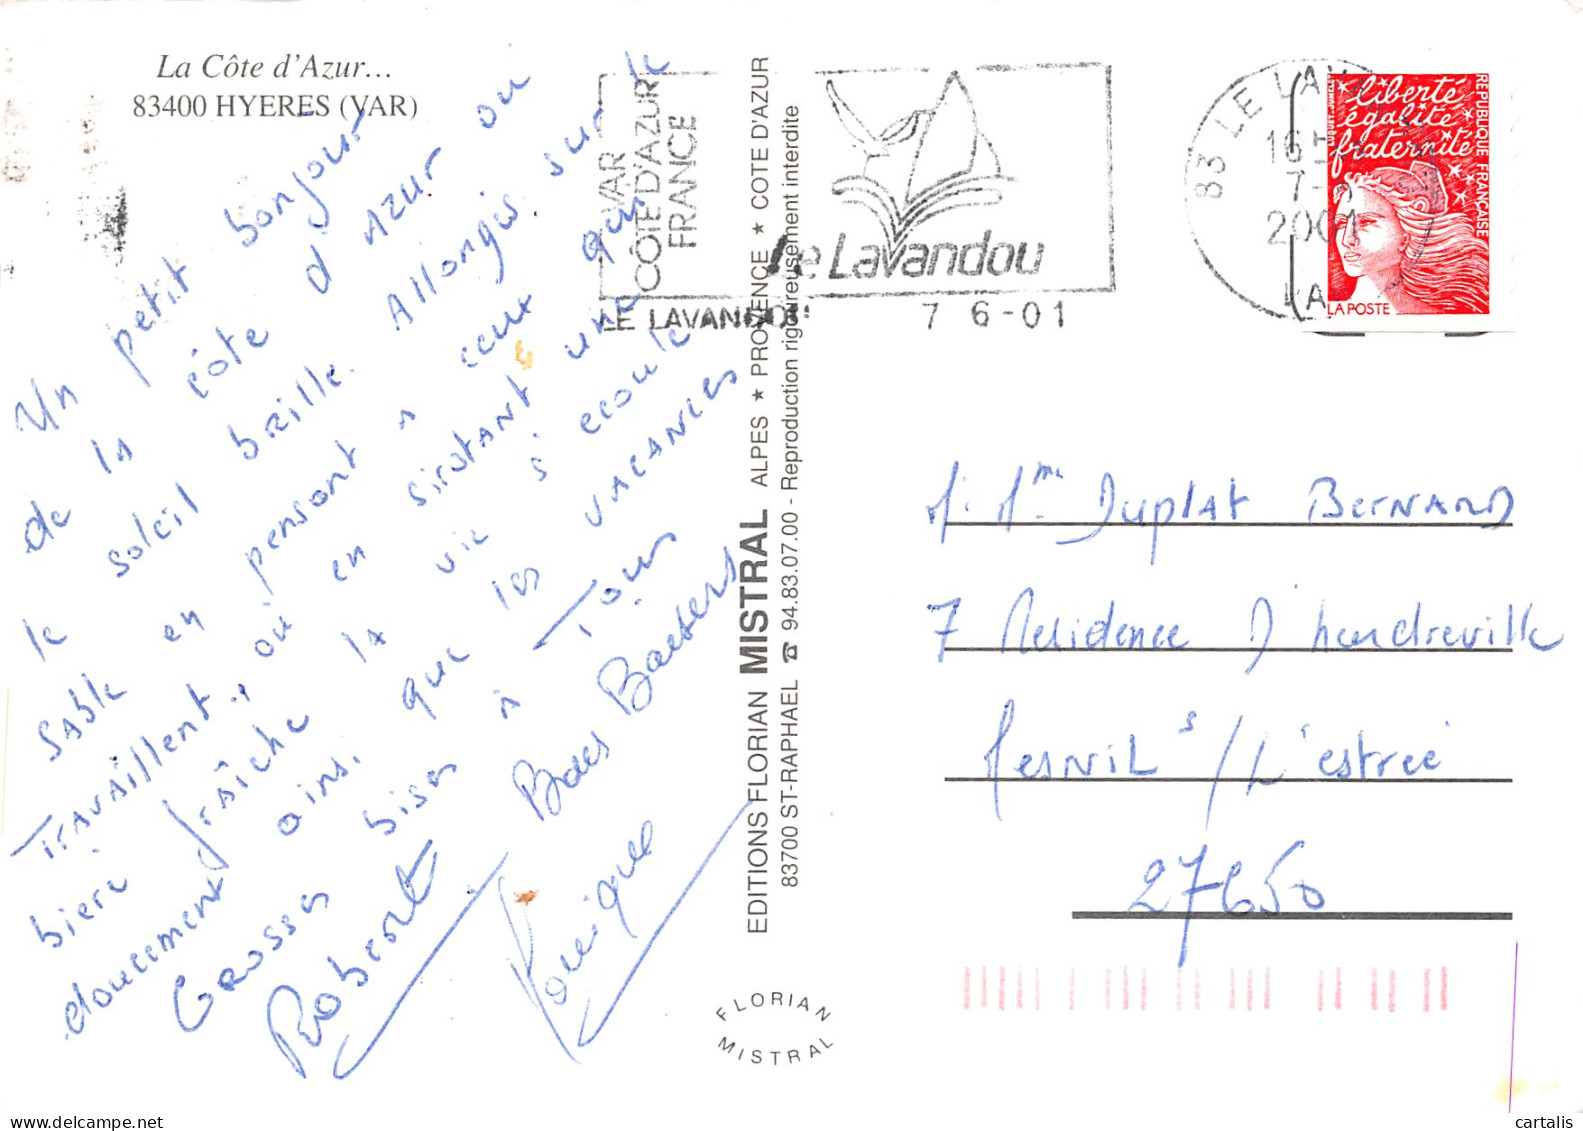 La Côte d'Azur...
83400 HYERES (VAR)
Un petit bonjour
de la côte d'Azur ou
le soleil brille. Allongés sur le
sable en pensant à ceux qui
travaillent, où en sirotant une
bière fraîche la vie s'écoule
doucement ainsi que les vacances
Grosses bises à Tous
Robert
VAR
COTE D'AZUR
FRANCE
le Lavandou
LE LAVANDOU
7 6-01
83 LE LAV
16H
7-6
2001
liberté
égalité
fraternité
REPUBLIQUE FRANÇAISE
LA POSTE
EDITIONS FLORIAN MISTRAL ALPES ★ PROVENCE ★ COTE D'AZUR
83700 ST-RAPHAEL ☎ 94.83.07.00 - Reproduction rigoureusement interdite
FLORIAN
MISTRAL
M. Mme Duplat Bernard
7 Residence d'heudreville
Mesnil s/L'estreé
27650
delcampe.net
cartalis